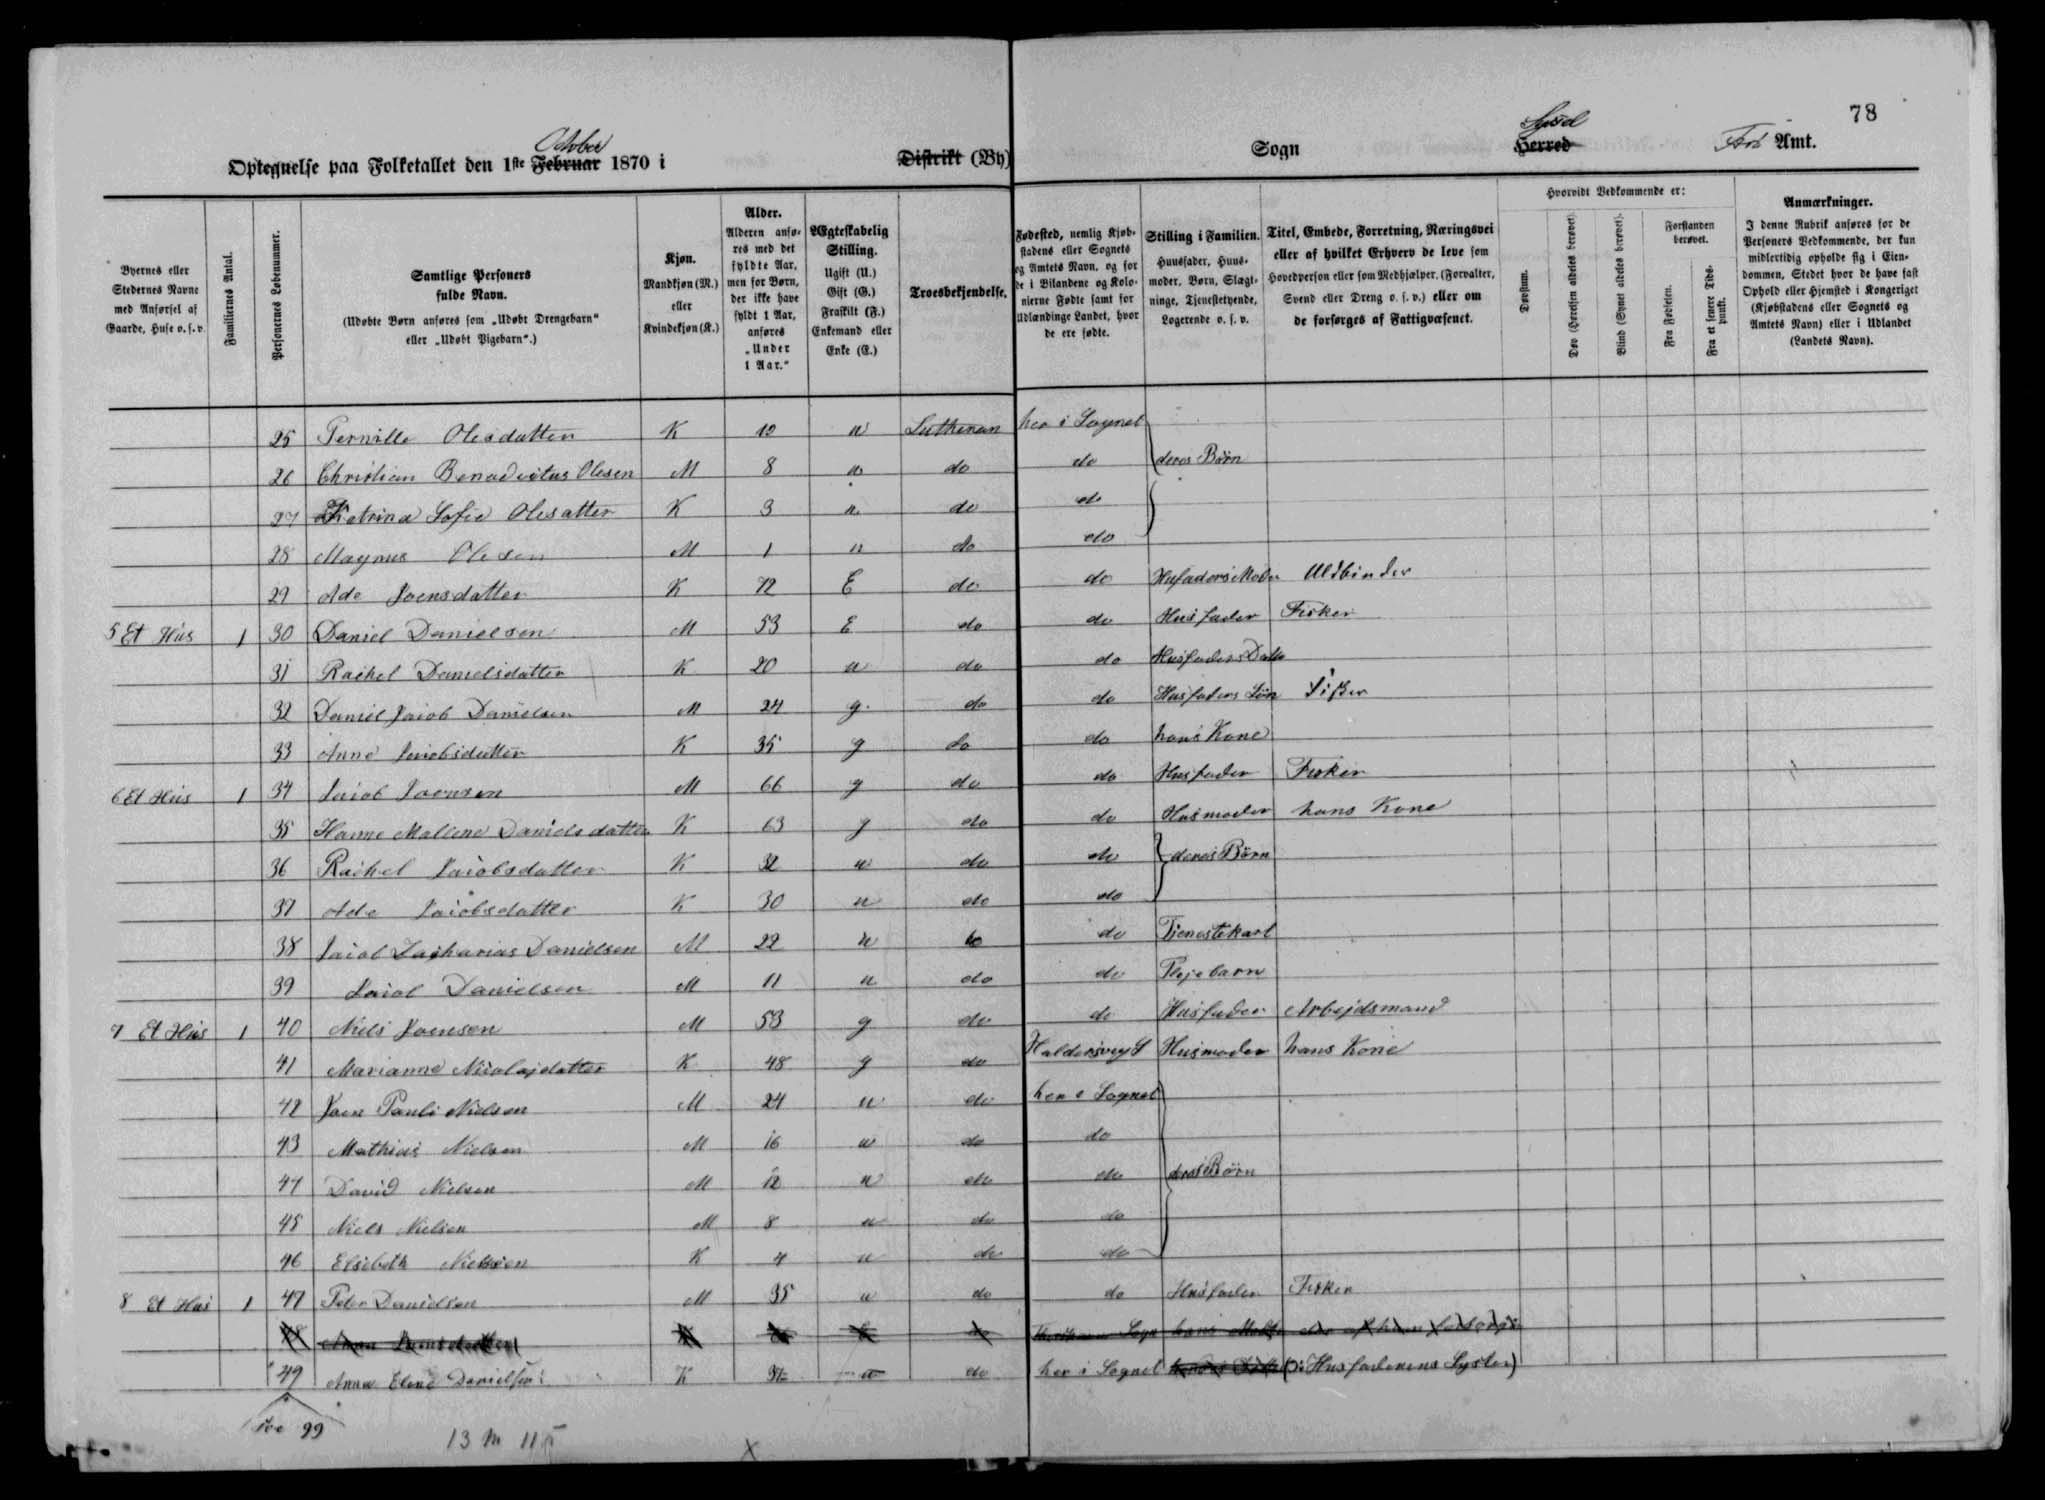 78
October
Optegnelse paa Folketallet den 1ste Februar 1870 i Distrikt (By) Sogn Herred Syssel Amt.
Byernes eller Stedernes Navne med Anførsel af Gaarde, Huse o. s. v.
Familiernes Antal.
Personernes Løbenummer.
Samtlige Personers fulde Navn.
(Udøbte Børn anføres som „Udøbt Drengebarn“ eller „Udøbt Pigebarn“.)
Kjøn.
Mandkjøn (M.) eller Kvindekjøn (K.)
Alder.
Alderen anføres med det fyldte Aar, men for Børn, der ikke have fyldt 1 Aar, anføres „Under 1 Aar.“
Ægteskabelig Stilling.
Ugift (U.) Gift (G.) Fraskilt (F.) Enkemand eller Enke (E.)
Troesbekjendelse.
Fødested, nemlig Kjøbstadens eller Sognets og Amtets Navn, og for de i Bilandene og Kolonierne Fødte samt for Udlændinge Landet, hvor de ere fødte.
Stilling i Familien.
Huusfader, Huusmoder, Børn, Slægtninge, Tjenestetyende, Logerende o. s. v.
Titel, Embede, Forretning, Næringsvei eller af hvilket Erhverv de leve som Hovedperson eller som Medhjælper, (Forvalter, Svend eller Dreng o. s. v.) eller om de forsørges af Fattigvæsenet.
Hvorvidt Vedkommende er:
Døvstum.
Døv (Hørelsen aldeles berøvet).
Blind (Synet aldeles berøvet).
Forstanden berøvet.
Fra Fødselen.
Fra et senere Tidspunkt.
Anmærkninger.
I denne Rubrik anføres for de Personers Vedkommende, der kun midlertidig opholde sig i Eiendommen, Stedet hvor de have fast Ophold eller Hjemsted i Kongeriget (Kjøbstadens eller Sognets og Amtets Navn) eller i Udlandet (Landets Navn).
25 Pernille Olesdatter K 10 u Lutheran her i Sognet
26 Christian Benedictus Olesen M 8 u do do deres Børn
27 Katrina Sofie Olesatter K 3 u do do
28 Magnus Olesen M 1 u do do
29 Ade Joensdatter K 72 E do do Husfaders Moder Uldbinder
5 Et Hus 1 30 Daniel Danielsen M 53 E do do Husfader Fisker
31 Rachel Danielsdatter K 20 u do do Husfaders Datter
32 Daniel Jacob Danielsen M 24 g do do Husfaders Søn Fisker
33 Anne Jacobsdatter K 35 g do do hans Kone
6 Et Hus 1 34 Jacob Joensen M 66 g do do Husfader Fisker
35 Hanne Mallene Danielsdatter K 63 g do do Husmoder hans Kone
36 Rachel Jacobsdatter K 32 u do do deres Børn
37 Ade Jacobsdatter K 30 u do do
38 Jacob Zacharias Danielsen M 22 u do do Tjenestekarl
39 Jacob Danielsen M 11 u do do Plejebarn
7 Et Hus 1 40 Niels Joensen M 53 g do do Husfader Arbejdsmand
41 Marianne Nicolajdatter K 48 g do Haldersvig S Husmoder hans Kone
42 Joen Pauli Nielsen M 24 u do her i Sognet
43 Mathias Nielsen M 16 u do do
44 David Nielsen M 12 u do do deres Børn
45 Niels Nielsen M 8 u do do
46 Elsebeth Nielsen K 4 u do do
8 Et Hus 1 47 Peter Danielsen M 35 u do do Husfader Fisker
49 Anna Elene Danielsen K u do her i Sognet (ɔ: Husfaderens Syster)
99
13 M 11